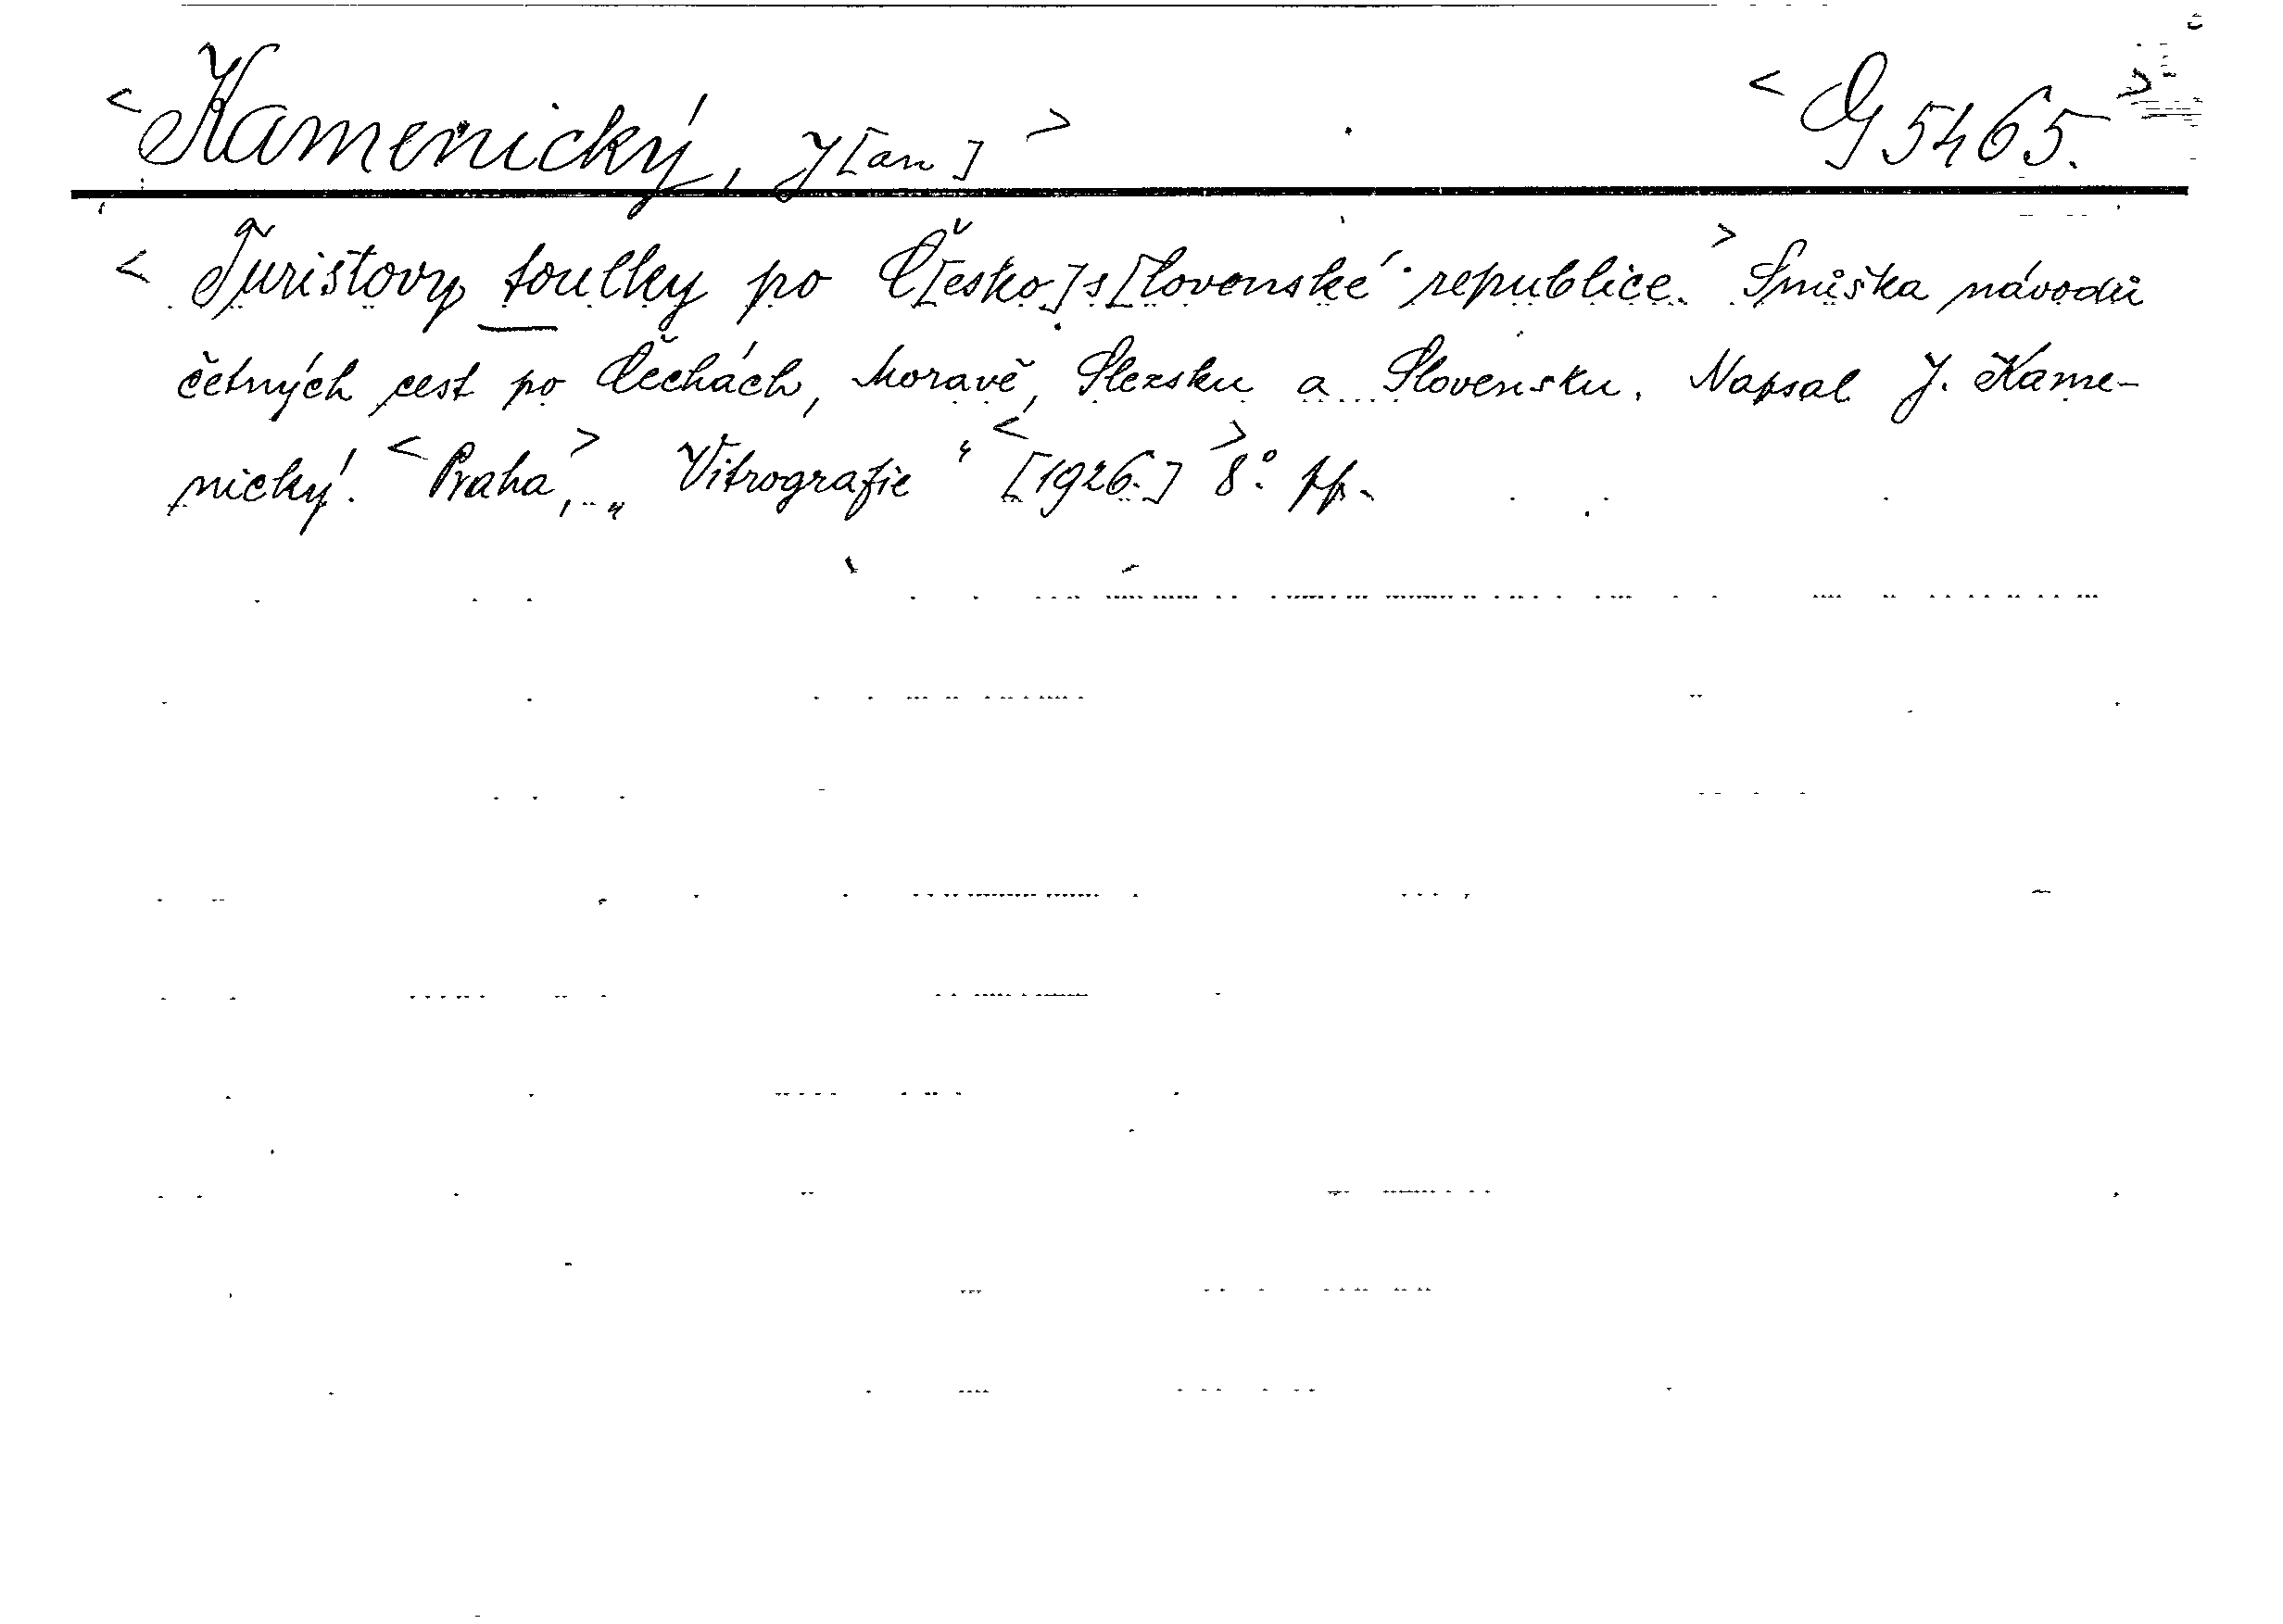 <Kamenický, J[an]> <G 5465.>
< Turistovy toulky po Č[esko]s[lovenské republice.> Smůška návodů
četných cest po Čechách, Moravě, Slezsku a Slovensku. Napsal J. Kame-
nický. <Praha,> „Vitrografie“ <[1926.]> 8°.